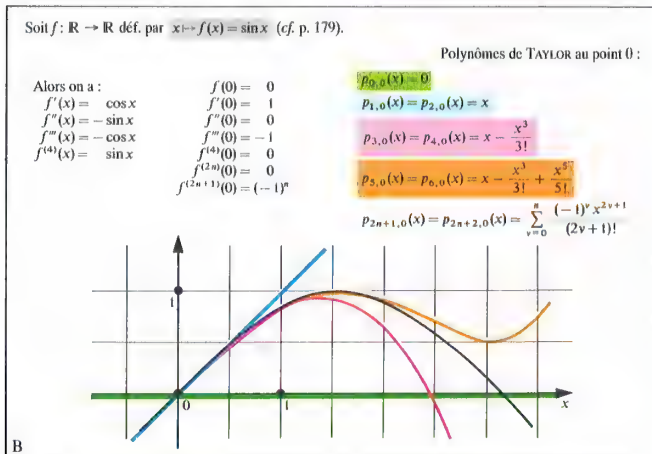 Soit f : ℝ → ℝ déf. par x ↦ f(x) = sin x (cf. p. 179).
Polynômes de TAYLOR au point 0 :
Alors on a :
f'(x) = cos x
f''(x) = − sin x
f'''(x) = − cos x
f⁽⁴⁾(x) = sin x
f(0) = 0
f'(0) = 1
f''(0) = 0
f'''(0) = −1
f⁽⁴⁾(0) = 0
f⁽²ⁿ⁾(0) = 0
f⁽²ⁿ⁺¹⁾(0) = (−1)ⁿ
p₀,₀(x) = 0
p₁,₀(x) = p₂,₀(x) = x
p₃,₀(x) = p₄,₀(x) = x − x³/3!
p₅,₀(x) = p₆,₀(x) = x − x³/3! + x⁵/5!
p₂ₙ₊₁,₀(x) = p₂ₙ₊₂,₀(x) = ∑_{ν=0}^{n} (−1)^ν x^{2ν+1} / (2ν+1)!
1
0
1
x
B